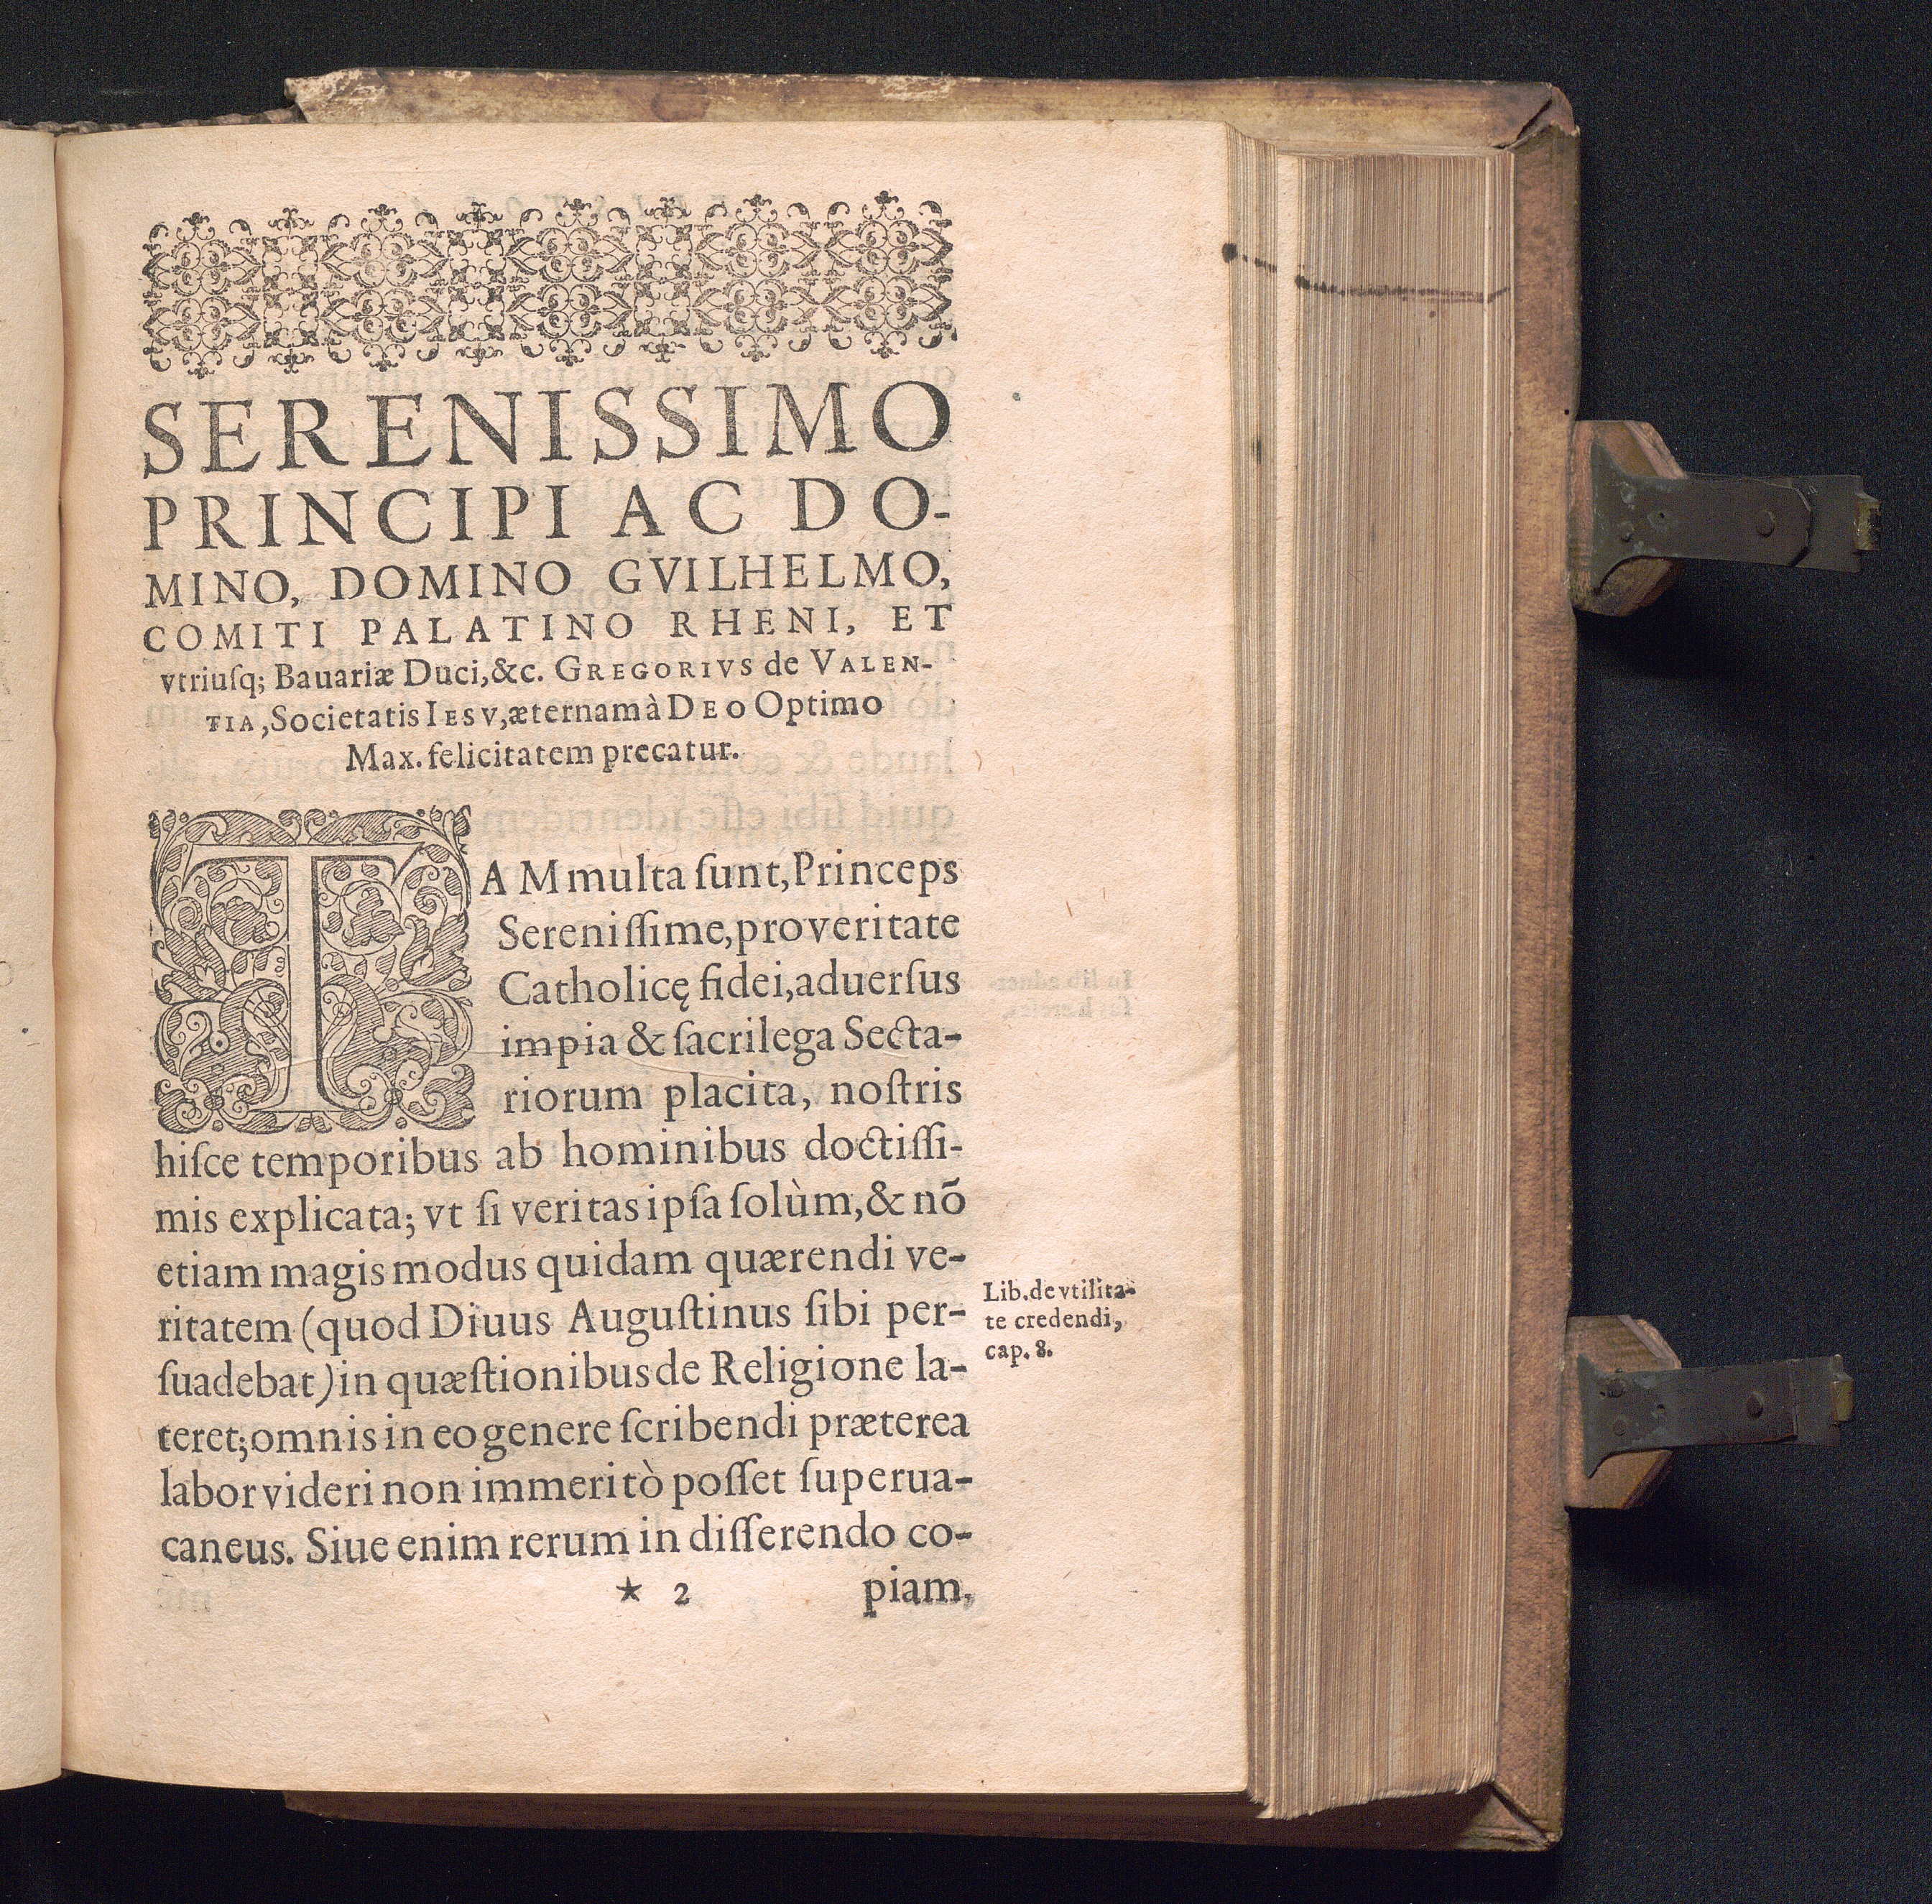 SERENISSIMO
PRINCIPI AC DO-
MINO, DOMINO GVILHELMO,
COMITI PALATINO RHENI, ET
vtriuſq; Bauariæ Duci, &c. GREGORIVS de VALEN-
TIA, Societatis IESV, æternam à DEO Optimo
Max. felicitatem precatur.
TAM multa ſunt, Princeps
Sereniſſime, pro veritate
Catholicę fidei, aduerſus
impia & ſacrilega Secta-
riorum placita, noſtris
hiſce temporibus ab hominibus doctiſſi-
mis explicata; vt ſi veritas ipſa ſolùm, & nō
etiam magis modus quidam quærendi ve-
ritatem (quod Diuus Auguſtinus ſibi per-
ſuadebat) in quæſtionibus de Religione la-
teret; omnis in eo genere ſcribendi præterea
labor videri non immeritò poſſet ſuperua-
caneus. Siue enim rerum in diſſerendo co-
* 2 piam,
Lib. de vtilita-
te credendi,
cap. 8.